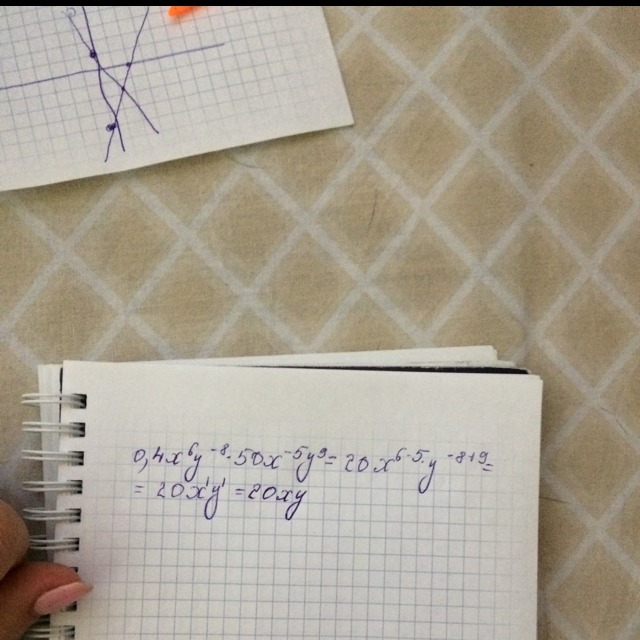 0,4x⁶y⁻⁸·50x⁻⁵y⁹=20x⁶⁻⁵y⁻⁸⁺⁹=
=20x¹y¹=20xy